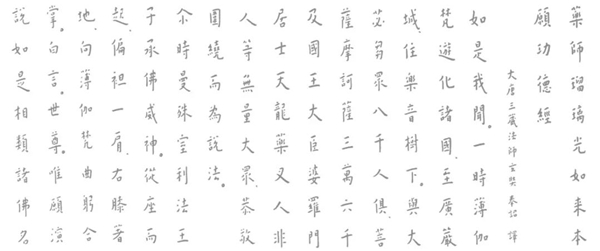 藥師瑠璃光如來本
願功德經
大唐三藏法師玄奘奉詔 譯
如是我聞。一時薄伽
梵遊化諸國、至廣嚴
城、住樂音樹下。與大
苾芻眾八千人俱、菩
薩摩訶薩三萬六千
及國王大臣婆羅門
居士天龍藥叉人非
人等無量大眾、恭敬
圍繞而為說法。
尒時曼殊室利法王
子承佛威神。從座而
起、偏袒一肩、右膝著
地、向薄伽梵曲躬合
掌。白言。世尊。唯願演
說如是相類諸佛名